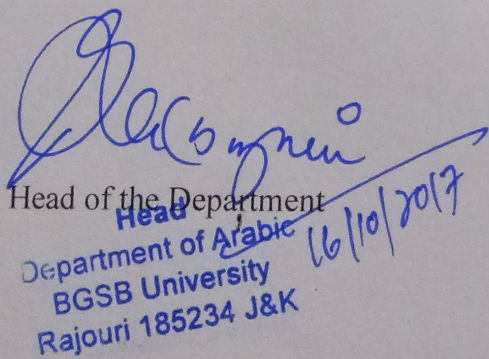 Head of the Department
Head
Department of Arabic
BGSB University
Rajouri 185234 J&K
16/10/2017